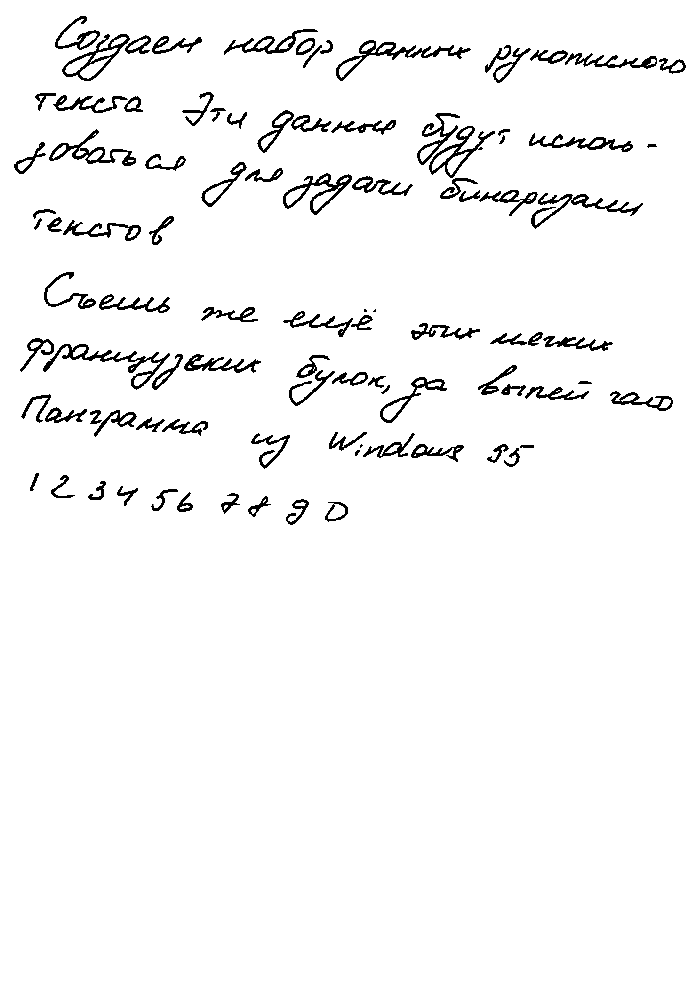 Создаем набор данных рукописного
текста Эти данные будут исполь-
зоваться для задачи бинаризации
текстов
Съешь же ещё этих мягких
французских булок, да выпей чаю
Панграмма из Windows 95
1 2 3 4 5 6 7 8 9 0